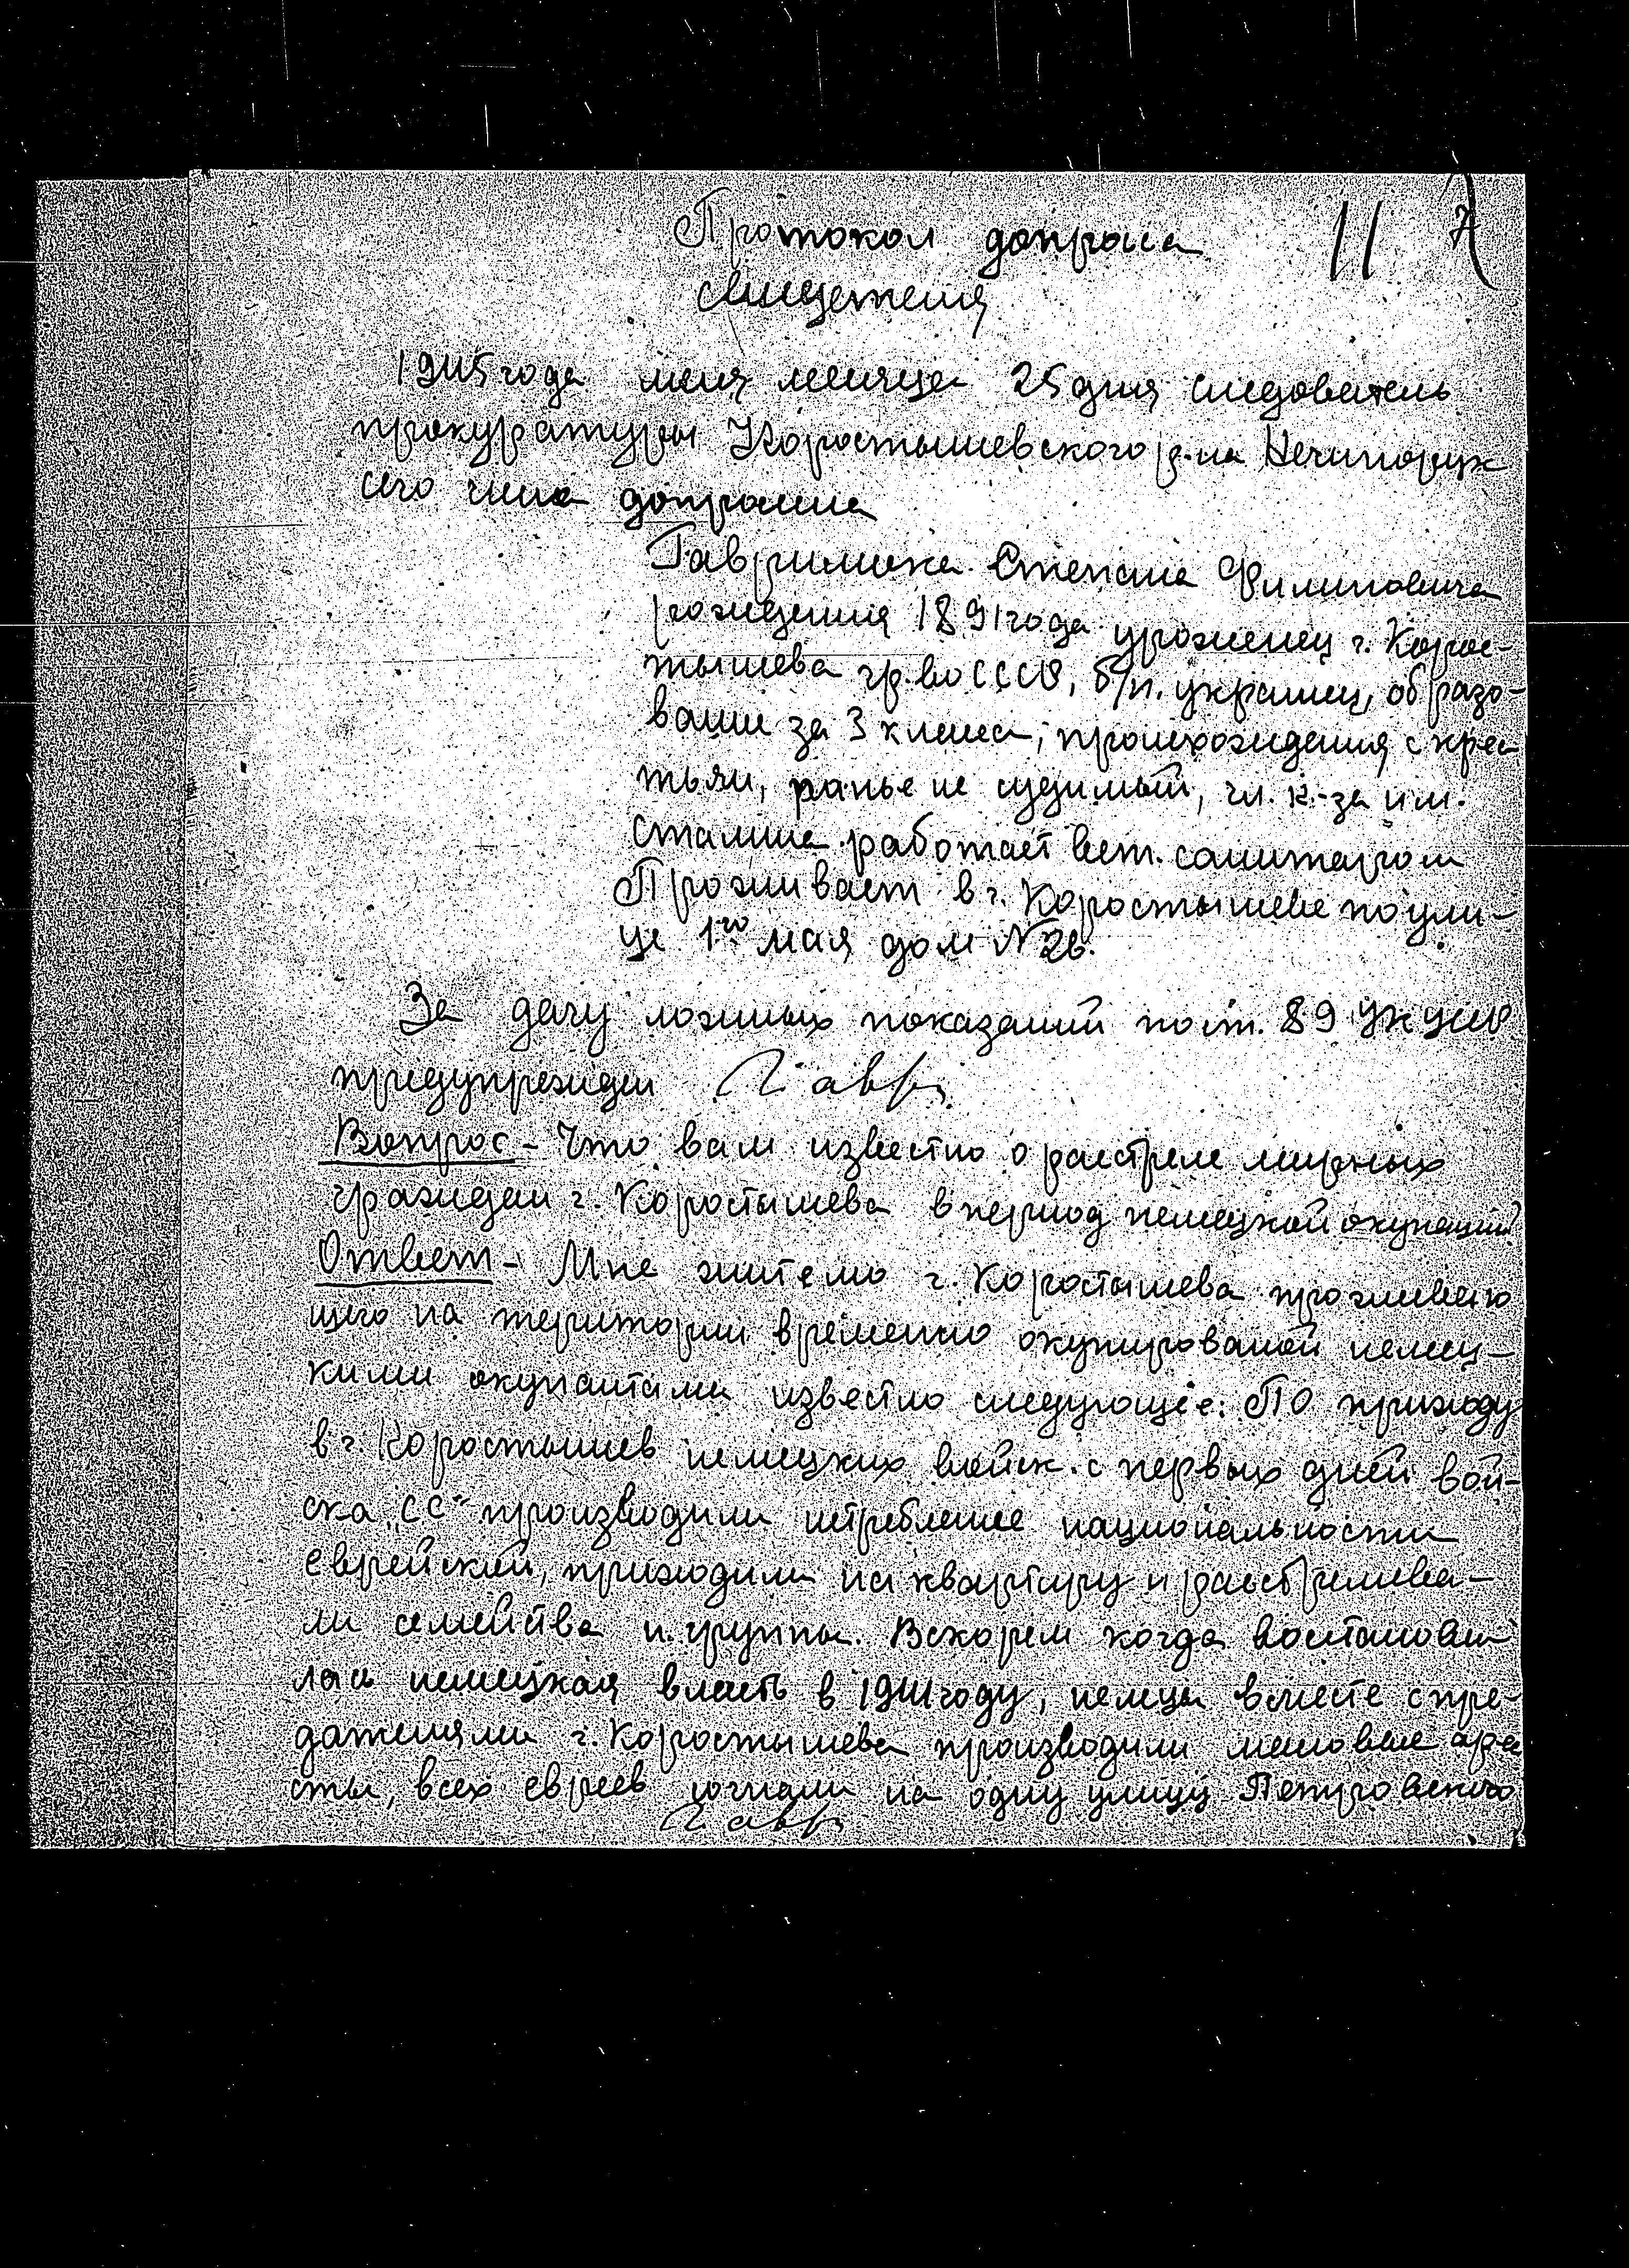 Протокол допроса 11 7
свидетеля
1945 года мая месяца 25 дня следователь
прокуратуры Коростышевского р-на Нечипорук
сего числа допросил
Гаврилюка Степана Филиповича
рождения 1891 года уроженец г. Корос-
тышева гр-во СССР, б/п. украинец, образо-
вание за 3 класса, происхождения с крес
тьян, ранье не судимый, чл. к-за им.
Сталина работает вет. санитаром
Проживает в г. Коростышеве по ули-
це 1го мая дом N 26.
За дачу ложных показаний по ст. 89 УК УССР
предупрежден Гавр
Вопрос - Что вам известно о расстреле мирных
граждан г. Коростышева в период немецкой окупации?
Ответ - Мне жителю г. Коростышева проживаю
щего на територии временно окупированой немец-
кими окупантами известно следующее: По приходу
в г. Коростышев немецких войск с первых дней вой-
ска „СС" производили истребление национальности
еврейской, приходили на квартиру и расстрелива-
ли семейства и группы. Вскорем когда востанови
лась немецкая власть в 1941 году, немцы вместе с пре-
дателями г. Коростышева производили массовые аре
сты, всех евреев согнали на одну улицу Петровского
Гавр